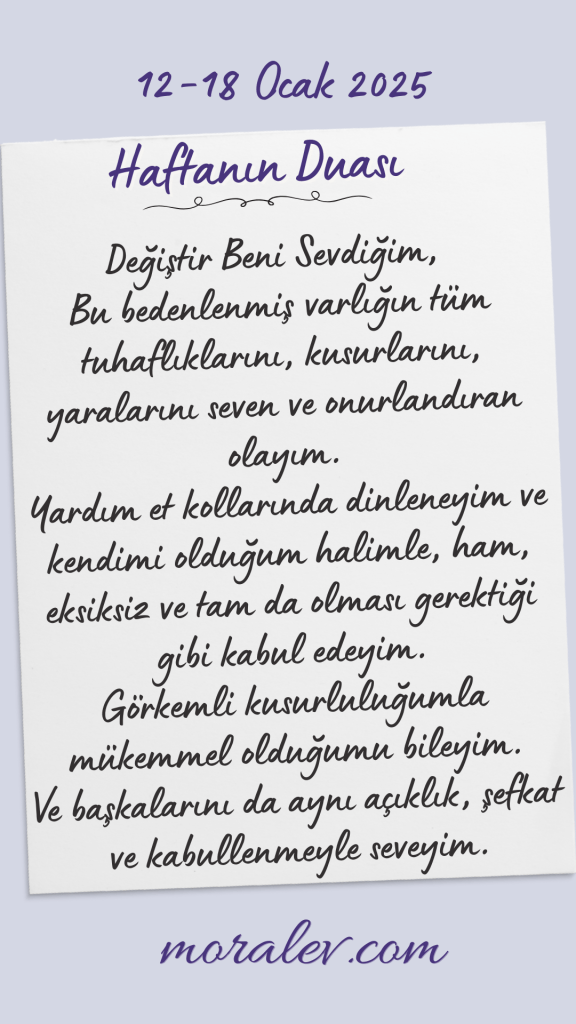 12-18 Ocak 2025
Haftanın Duası
Değiştir Beni Sevdiğim,
Bu bedenlenmiş varlığın tüm
tuhaflıklarını, kusurlarını,
yaralarını seven ve onurlandıran
olayım.
Yardım et kollarında dinleneyim ve
kendimi olduğum halimle, ham,
eksiksiz ve tam da olması gerektiği
gibi kabul edeyim.
Görkemli kusurluluğumla
mükemmel olduğumu bileyim.
Ve başkalarını da aynı açıklık, şefkat
ve kabullenmeyle seveyim.
moralev.com